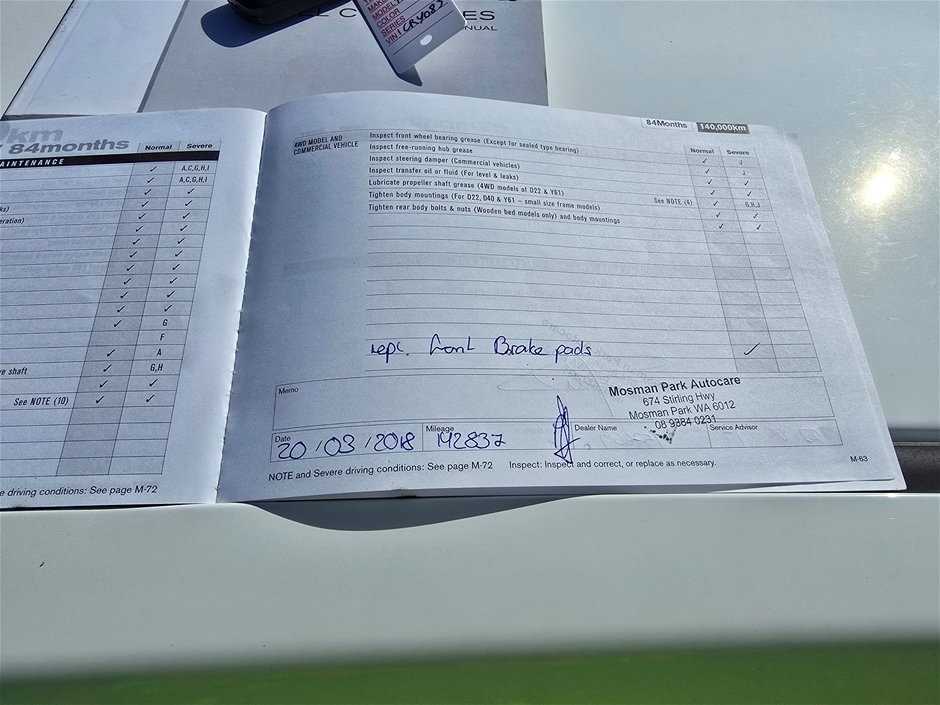 MODEL
COLOR
SERIES
VIN 1CRY083
UAL
km
84months
Normal Severe
AINTENANCE
A,C,G,H,I
A,C,G,H,I
ks)
eration)
G
F
A
ve shaft G,H
See NOTE (10)
e driving conditions: See page M-72
84Months 140,000km
4WD MODEL AND
COMMERCIAL VEHICLE
Normal Severe
Inspect front wheel bearing grease (Except for sealed type bearing)
Inspect free-running hub grease
Inspect steering damper (Commercial vehicles)
Inspect transfer oil or fluid (For level & leaks)
Lubricate propeller shaft grease (4WD models of D22 & Y61) See NOTE (4) G,H,J
Tighten body mountings (For D22, D40 & Y61 – small size frame models)
Tighten rear body bolts & nuts (Wooden bed models only) and body mountings
repl. front Brake pads
Memo
Mosman Park Autocare
674 Stirling Hwy
Mosman Park WA 6012
08 9384 0231
Date 20/03/2018 Mileage 142837 Dealer Name Service Advisor
NOTE and Severe driving conditions: See page M-72 Inspect: Inspect and correct, or replace as necessary.
M-63